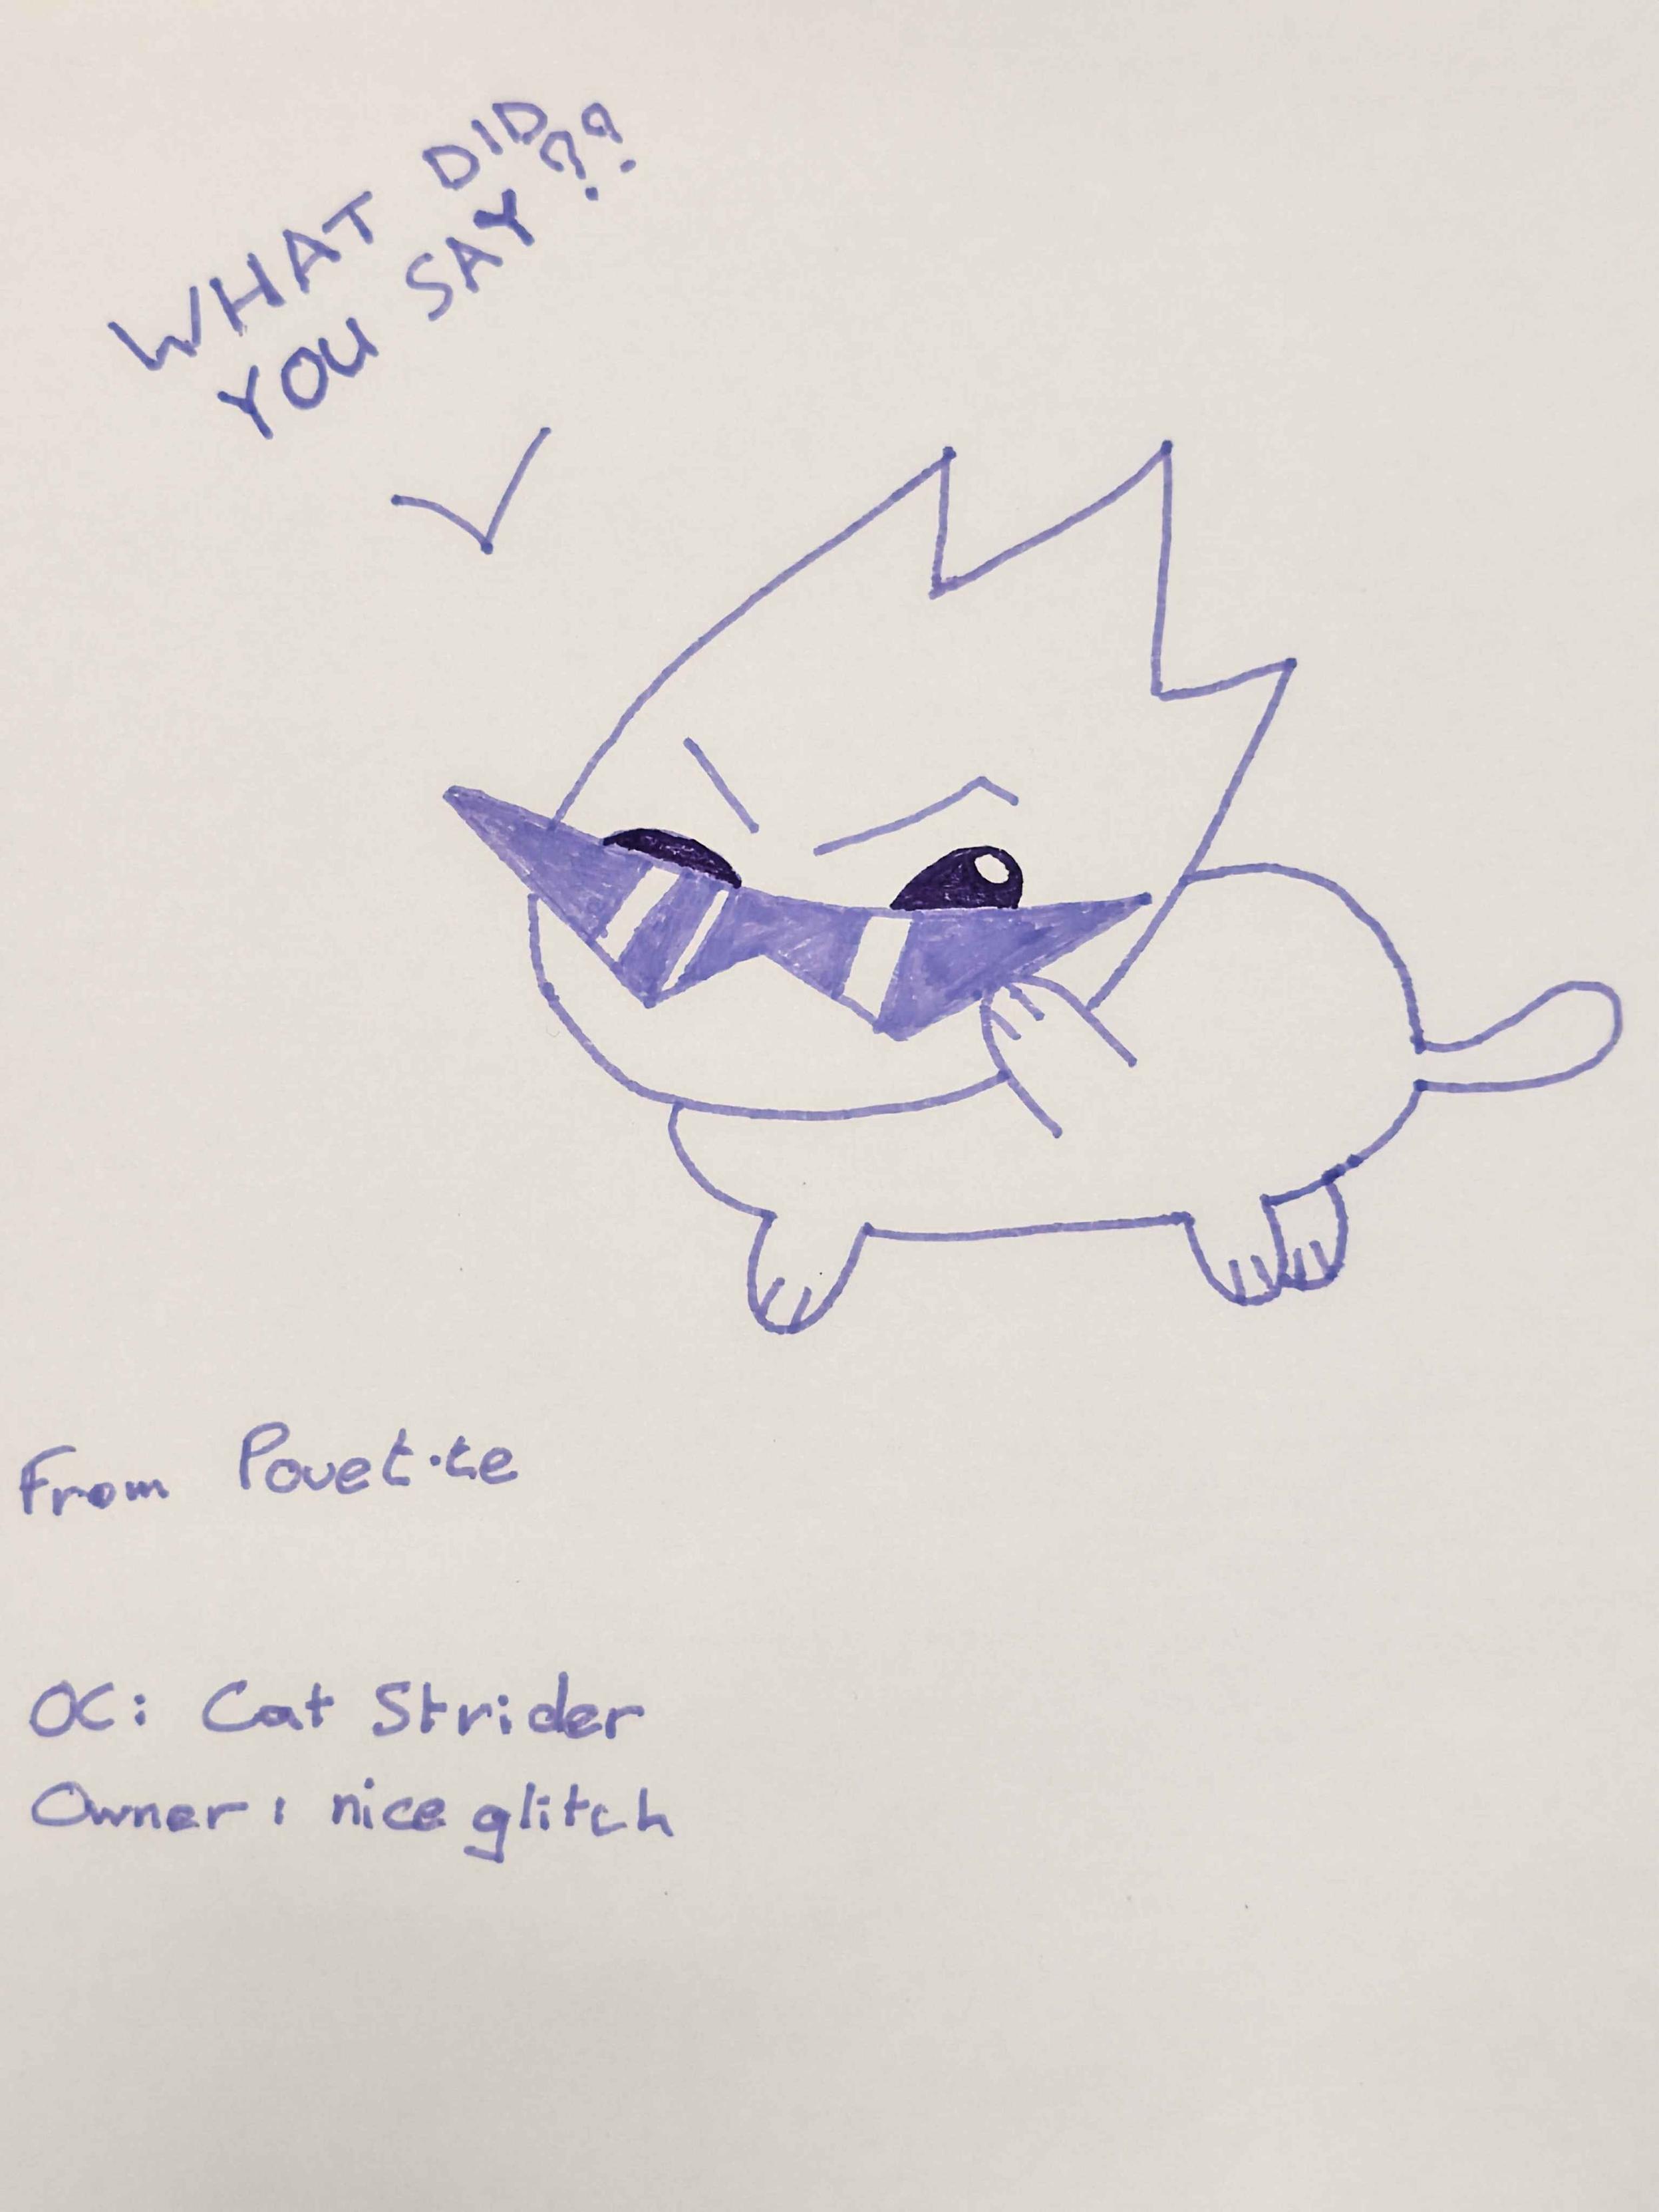 WHAT DID
YOU SAY??
From Pouet.te
OC: Cat Strider
Owner: nice glitch